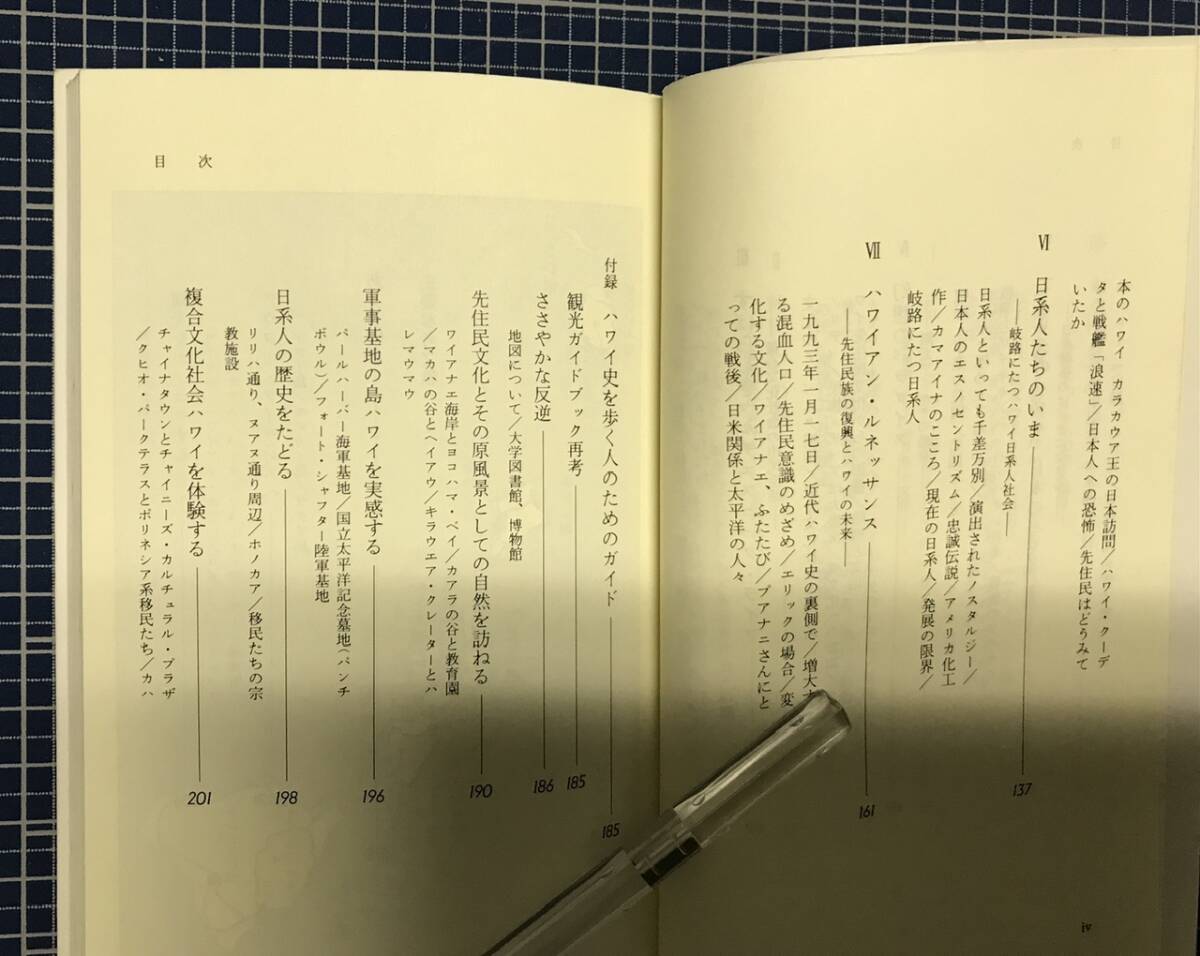 本のハワイ カラカウア王の日本訪問／ハワイ・クーデ
タと戦艦「浪速」／日本人への恐怖／先住民はどうみて
いたか
Ⅵ 日系人たちのいま 137
――岐路にたつハワイ日系人社会――
日系人といっても千差万別／演出されたノスタルジー／
日本人のエスノセントリズム／忠誠伝説／アメリカ化工
作／カマアイナのこころ／現在の日系人／発展の限界／
岐路にたつ日系人
Ⅶ ハワイアン・ルネッサンス 161
――先住民族の復興とハワイの未来――
一九九三年一月一七日／近代ハワイ史の裏側で／増大す
る混血人口／先住民意識のめざめ／エリックの場合／変
化する文化／ワイアナエ、ふたたび／プアナニさんにと
っての戦後／日米関係と太平洋の人々
iv
目次
付録 ハワイ史を歩く人のためのガイド 185
観光ガイドブック再考 185
ささやかな反逆 186
地図について／大学図書館、博物館
先住民文化とその原風景としての自然を訪ねる 190
ワイアナエ海岸とヨコハマ・ベイ／カアラの谷と教育園
／マカハの谷とヘイアウ／キラウエア・クレーターとハ
レマウマウ
軍事基地の島ハワイを実感する 196
パールハーバー海軍基地／国立太平洋記念墓地（パンチ
ボウル）／フォート・シャフター陸軍基地
日系人の歴史をたどる 198
リリハ通り、ヌアヌ通り周辺／ホノカア／移民たちの宗
教施設
複合文化社会ハワイを体験する 201
チャイナタウンとチャイニーズ・カルチュラル・プラザ
／クヒオ・パークテラスとポリネシア系移民たち／カハ